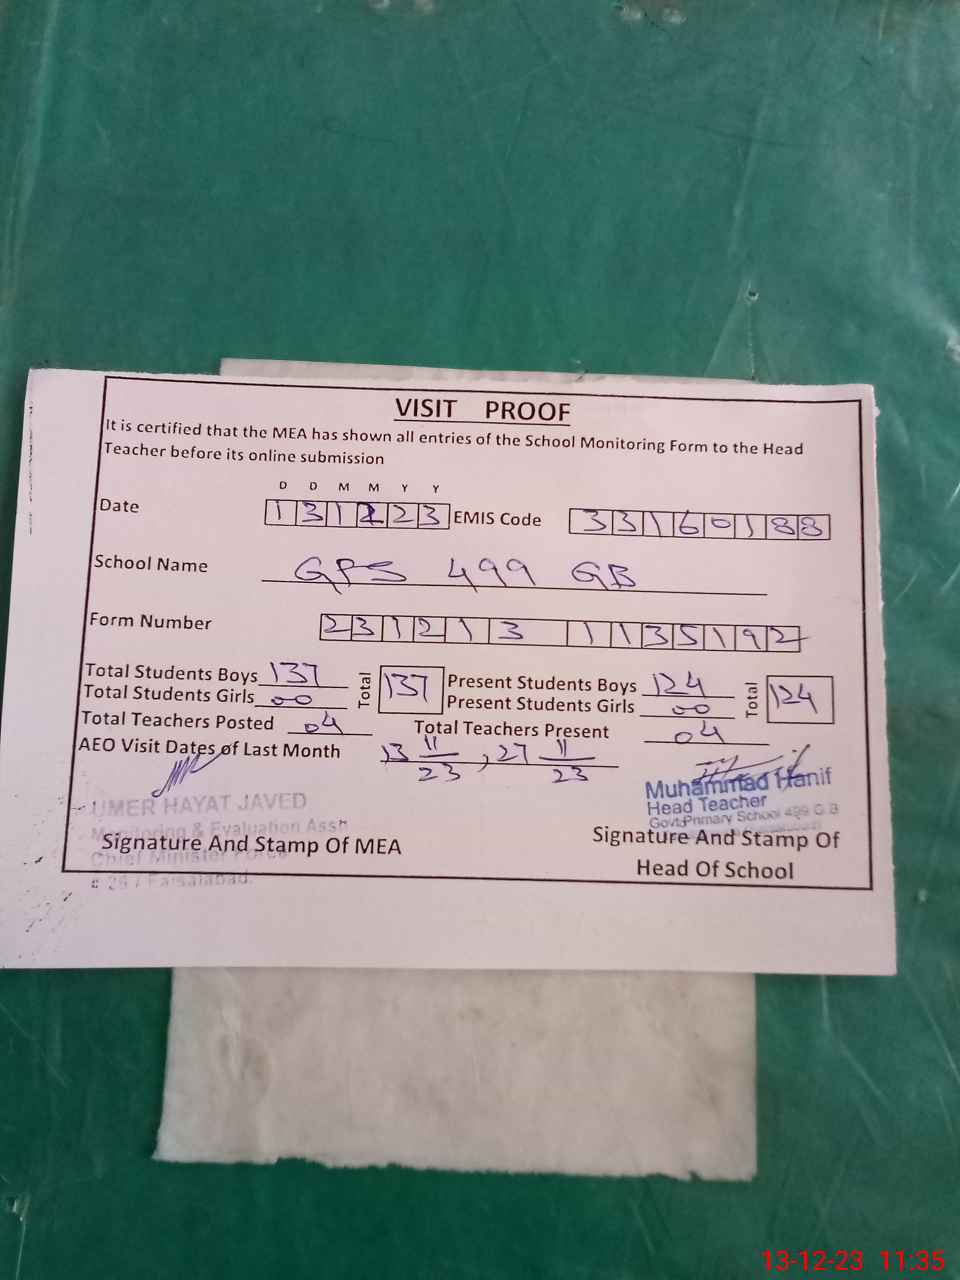 VISIT PROOF
It is certified that the MEA has shown all entries of the School Monitoring Form to the Head
Teacher before its online submission
D D M M Y Y
Date 131223 EMIS Code 33160188
School Name GPS 499 GB
Form Number 231213 1135192
Total Students Boys 137 Total 137 Present Students Boys 124 Total 124
Total Students Girls 00 Present Students Girls 00
Total Teachers Posted 04 Total Teachers Present 04
AEO Visit Dates of Last Month 13 11/23, 27 11/23
UMER HAYAT JAVED
Monitoring & Evaluation Asstt
Chief Minister Force
# 26 / Faisalabad.
Signature And Stamp Of MEA
Muhammad Hanif
Head Teacher
Govt Primary School 499 G.B
Signature And Stamp Of
Head Of School
13-12-23 11:35